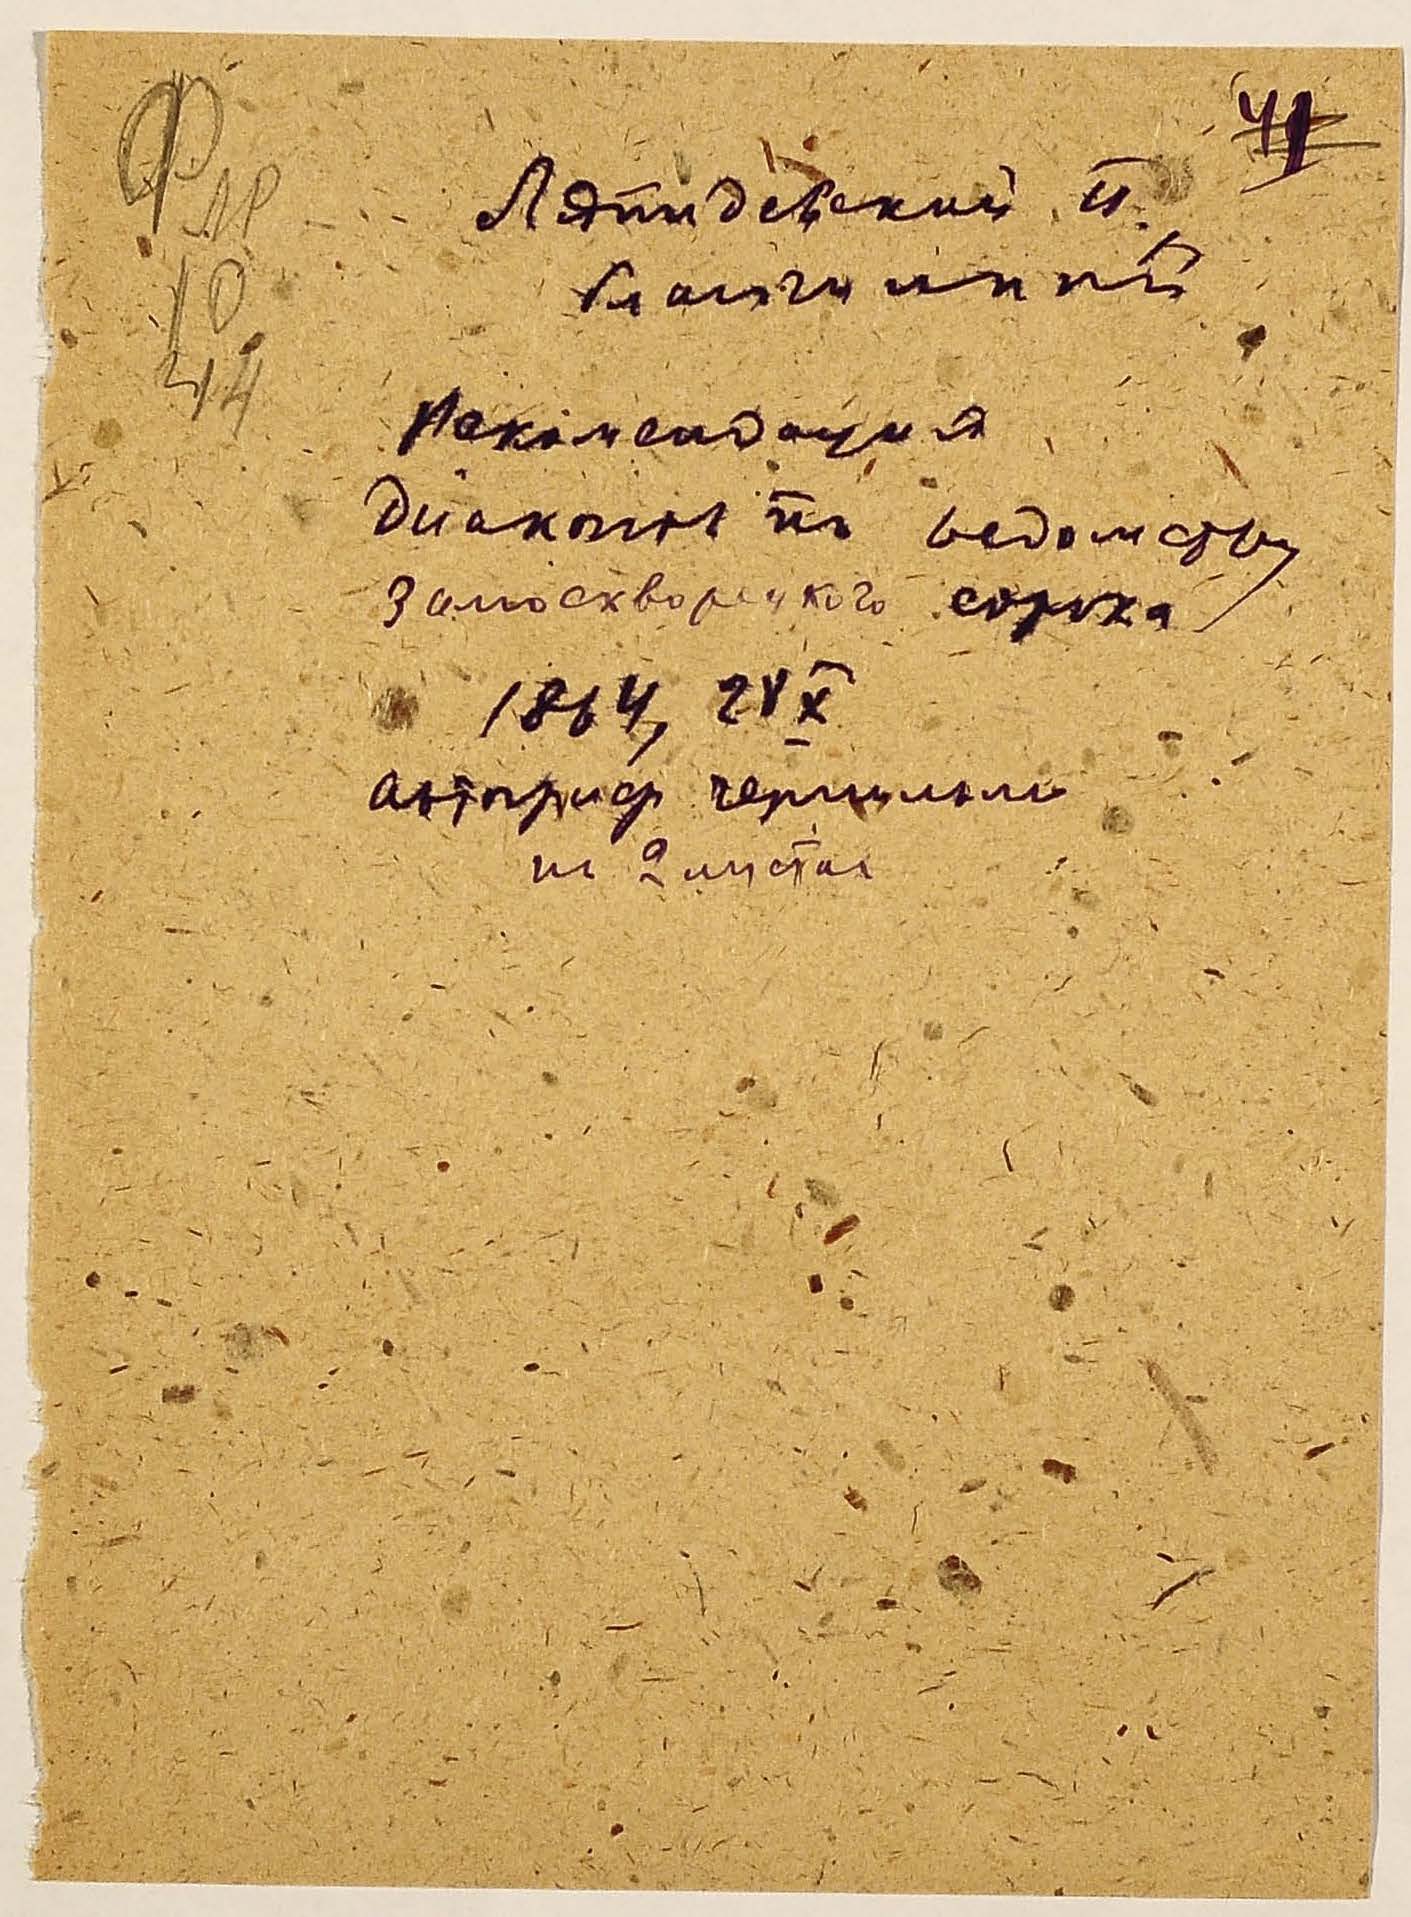 41
Ф
ЛР
10
44
Ляпидевский П.
благочинный
Рекомендация
диаконов по ведомству
Замоскворецкого сорока
1864, 28 X
автограф чернилами
на 2 листах